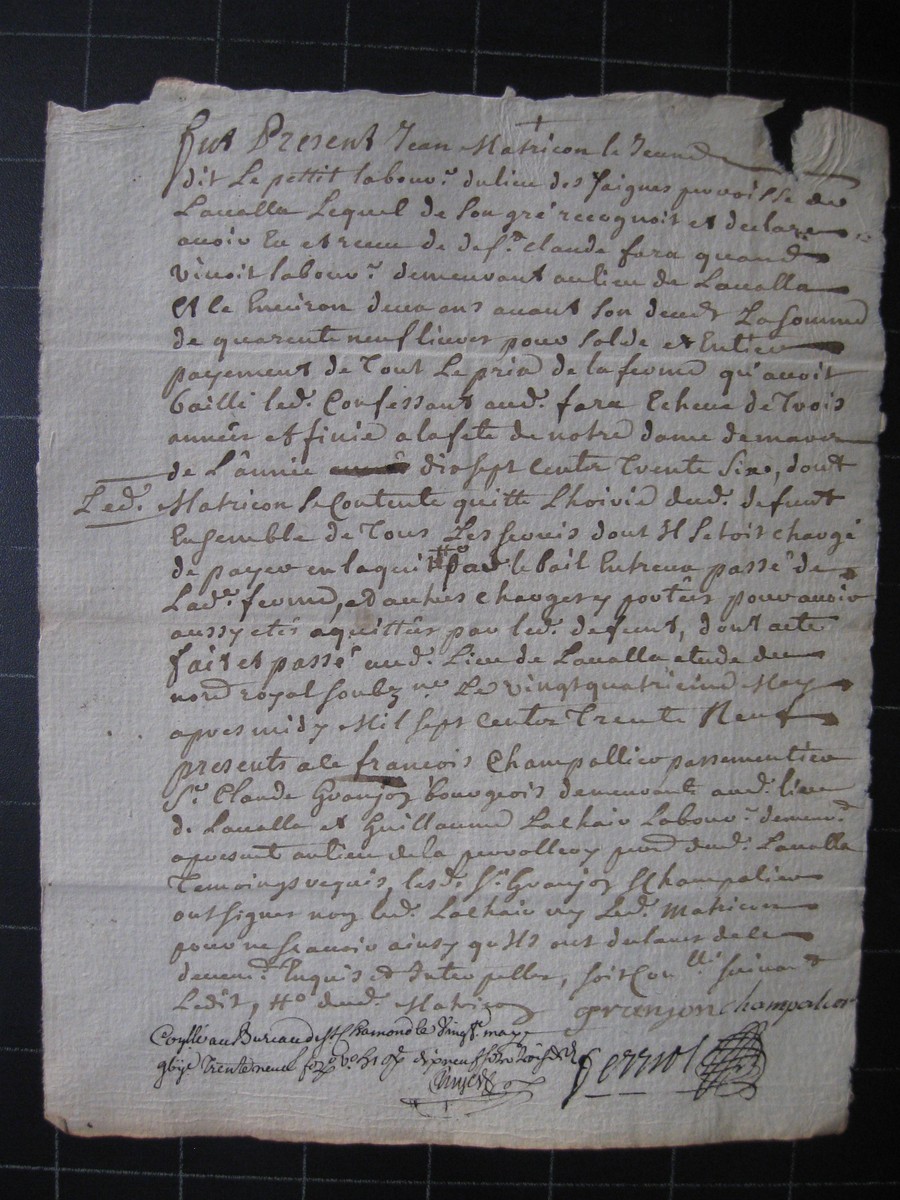 fut Present Jean Matricon le Jeune
dit Le pettit labour.r du lieu des Saignes parroisse de
Lavalla Lequel de son gré recognoit et declare
avoir Eu et receu de def.t Claude fara quand
vivoit labour.r demeurant au lieu de Lavalla
Et ce Environ deux ans avant son deced La somme
de quarente neuf livres pour solde et Entier
payement de Tout Le prix de la ferme qu'avoit
bailli led. Confessant aud. fara Echeue de Trois
années et finie a la fete de notre dame de mars
de L'année dixsept Centz Trente Six, dont
Led. Matricon se Contente quitte L'hoirie dud. defunt
Ensemble de Tous Les servis dont Il s'etoit chargé
de payer en laquit par le bail Entreux passé de
Lad.e ferme, et autres charges y portées pour avoir
aussy etés aquittées par led. defunt, dont acte
fait et passé aud. Lieu de Lavalla etude du
nore royal soubz.né Le vingt quatrieme May
apres midy Mil sept Centz Trente Neuf
presents a ce francois Champallier passementier
S.r Claude Granjon bourgeois demeurant aud. lieu
de Lavalla et Guillaume Lachair Labour.r demeur.t
apresent au lieu de la parrd dud. Lavalla
Temoings requis, lesd. S.r Granjon & Champalier
ont signes non led. Lachair ny Led. Matricon
pour ne scavoir ainsy qu'ils ont declaré de ce
deuem.t Enquis et Interpellés, soit Con.llé suivant
Ledit, dud. Matricon granjon Champalier
Co.llé au Bureau de St Chamond le vingt may
trente neuf dix neuf
ferriol